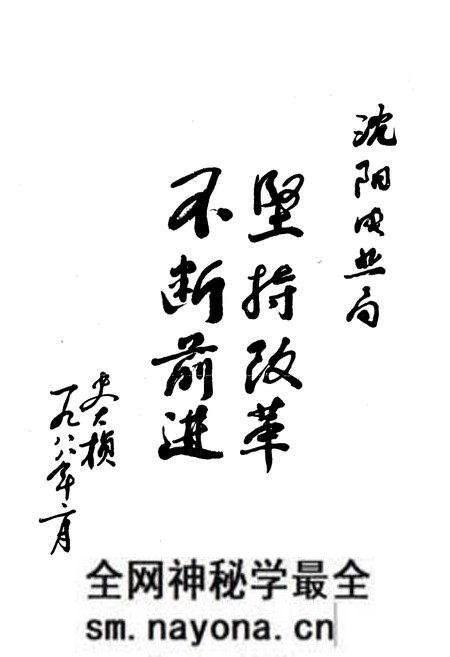 沈阳电业局
坚持改革
不断前进
史大桢
一九八八年二月
全网神秘学最全
sm.nayona.cn